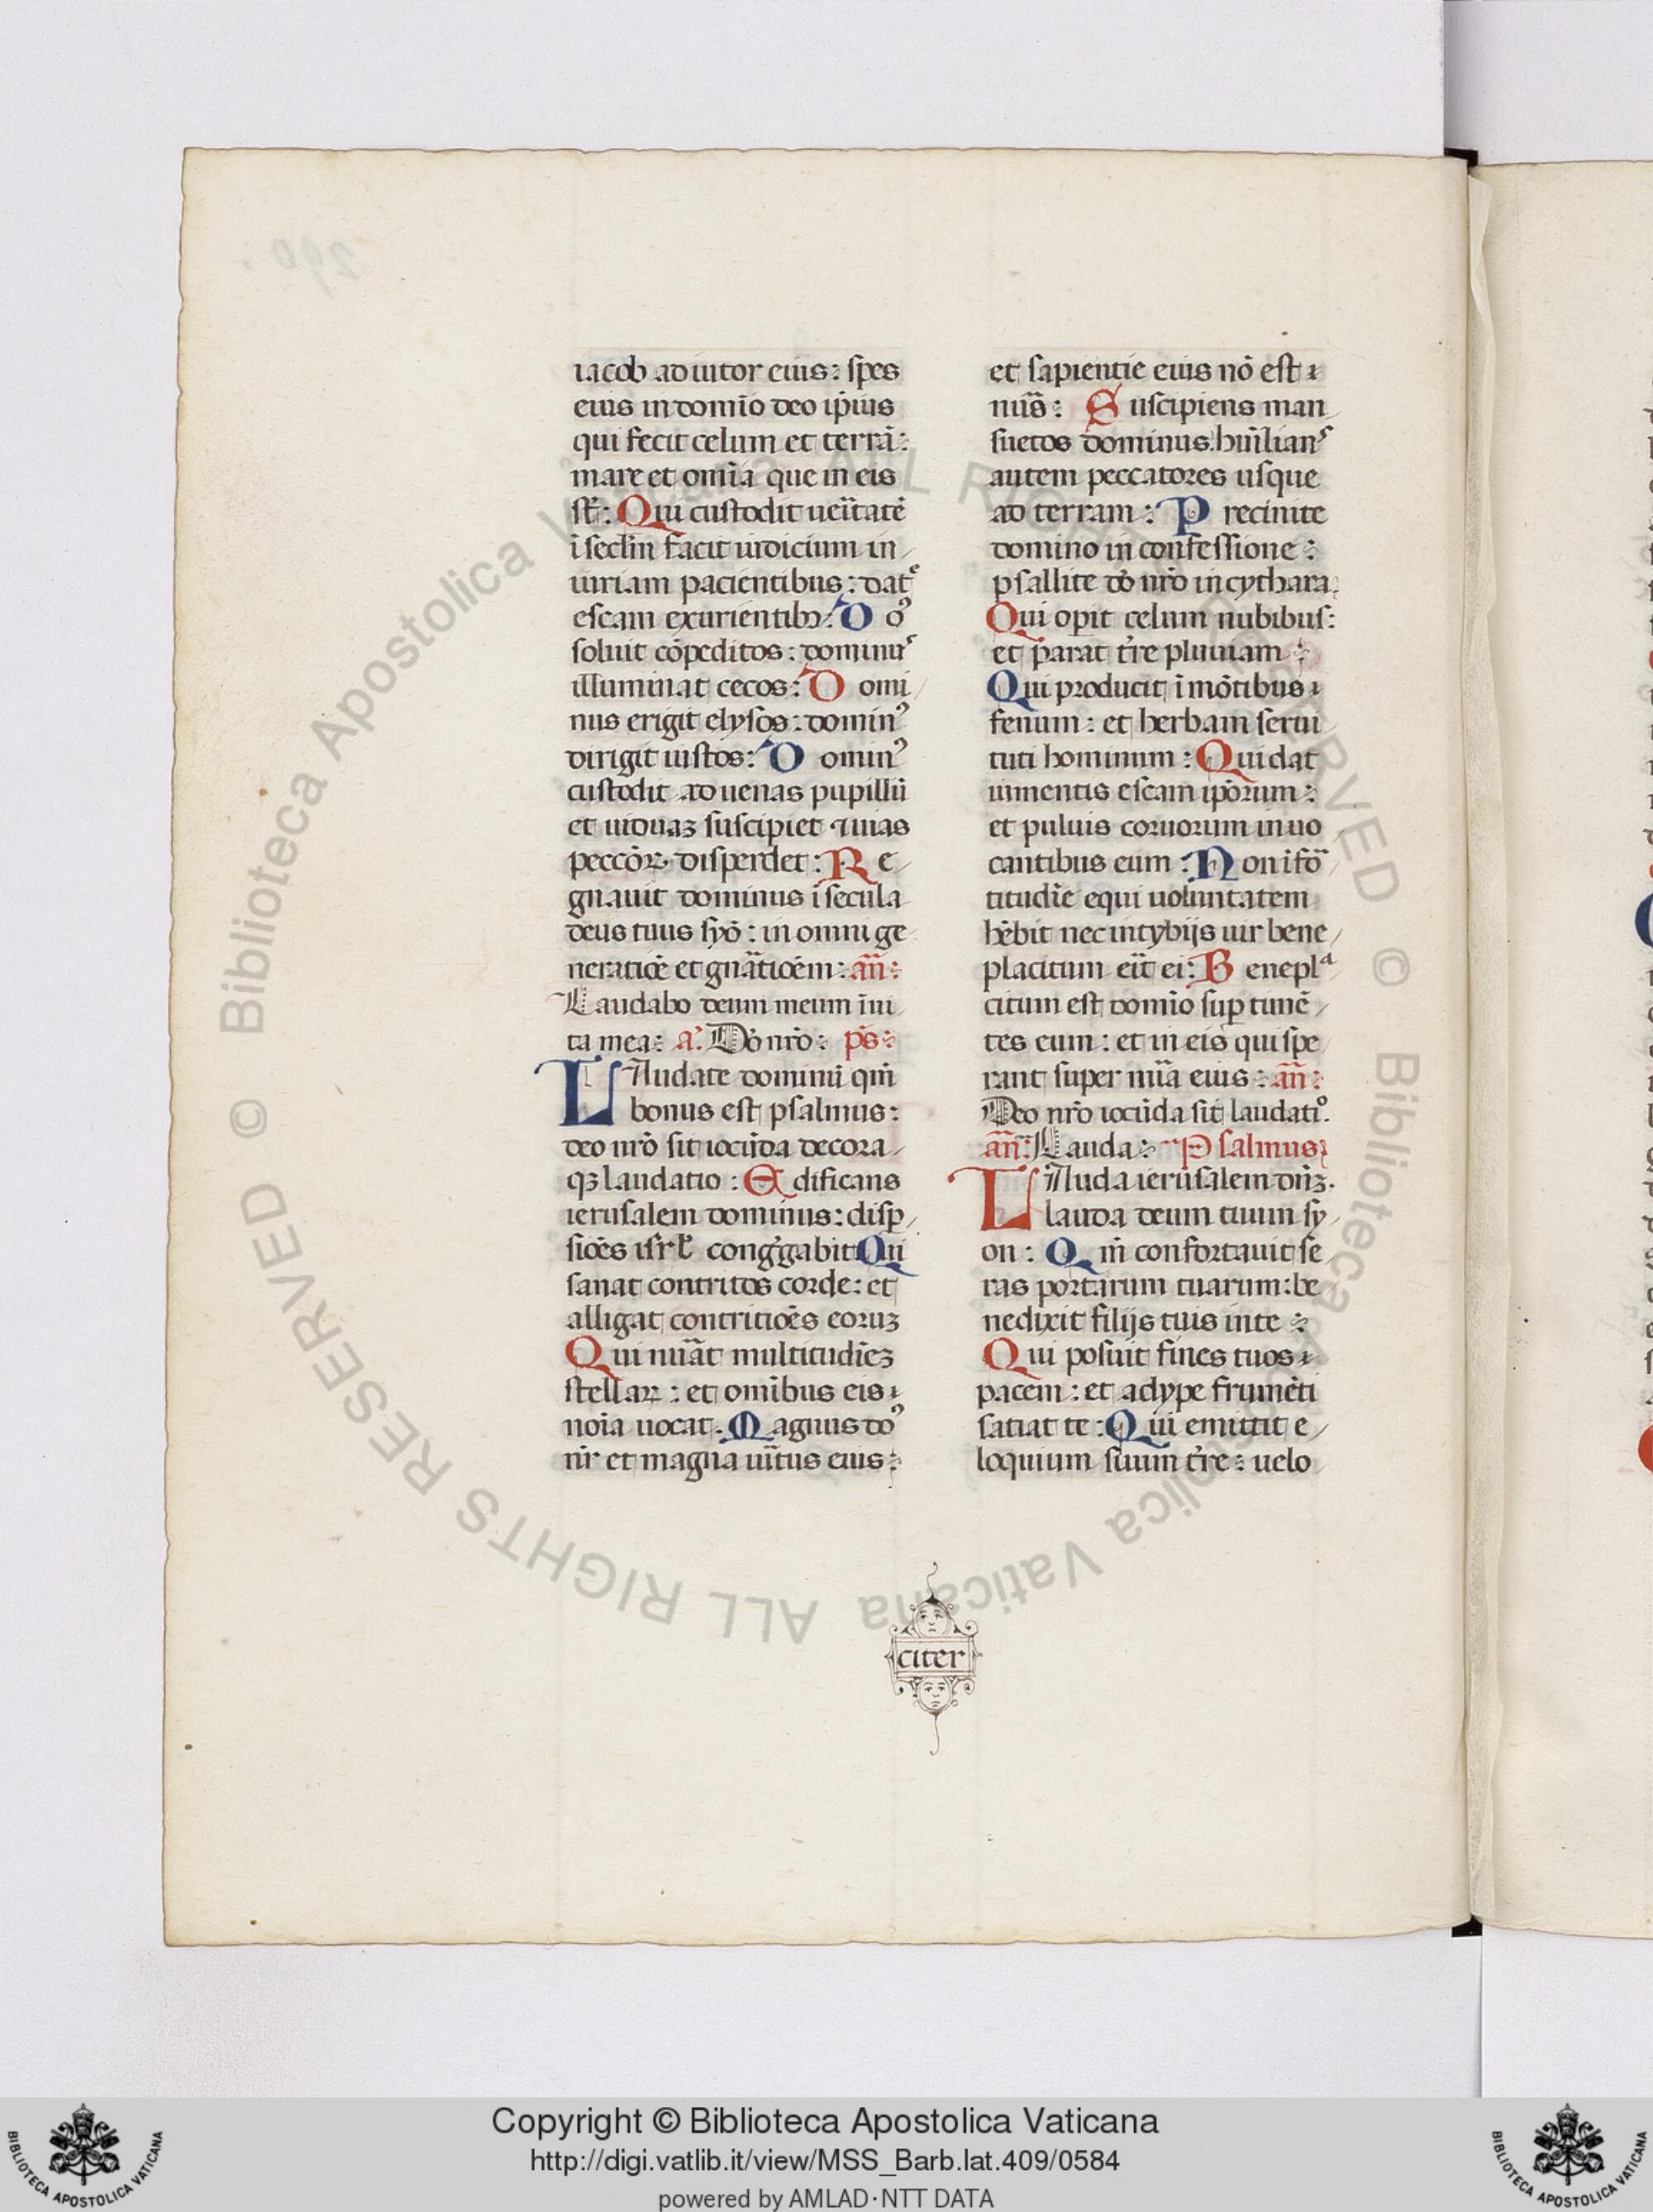 iacob adiutor eius: spes
eius in domīo deo ip̄ius
qui fecit celum et terrā:
mare et om̄ia que in eis
st̄: Qui custodit ueītatē
ī sect̄m facit iudicium in
iuriam pacientibus: dat
escam exurientibꝫ: D o᷒
soluit cōpeditos: dominus
illuminat cecos: D omi
nus erigit elysos: domin᷒
dirigit iustos: D omin᷒
custodit aduenas pupillū
et uiduaꝫ suscipiet ⁊ uias
peccōꝝ disperdet: R e
gnauit dominus ī secula
deus tuus syō: in omni ge
neratiōē et gnātiōēm: an̄:
Laudabo deum meum ī ui
ta mea: a᷒. Dō nrō: ps̄:
LAudate dominū qm̄
bonus est psalmus:
deo nrō sit iocūda decora
qꝫ laudatio: E dificans
ierusalem dominus: disp̱
siōēs isrl̄ congͥgabit Qui
sanat contritos corde: et
alligat contritiōēs eoruꝫ
Qui nūāt multitudīeꝫ
stellaꝝ: et omībus eis
noīa uocat. M agnus do᷒
nr̄ et magna uītus eius:
et sapientie eius nō est
nūs: S uscipiens man
suetos dominus. hūlians
autem peccatores usque
ad terram: P recinite
domino in confessione:
psallite dō nrō in cythara.
Qui op̱it celum nubibus:
et parat tr̄e pluuiam:
Qui producit ī mōtibus
fenum: et herbam serui
tuti hominum: Qui dat
iumentis escam ipōrum:
et puluis coruorum inuo
cantibus eum: N on ī fō
titudīe equi uoluntatem
hēbit nec in tybijs uir bene
placitum eīt ei: B enepla
citum est domīo sup̱ timē
tes eum: et in eis qui spe
rant super mīa eius: an̄:
Deo nrō iocūda sit laudatio.
an̄: Lauda: Psalmus
LAuda ierusalem dn̄ꝫ.
lauda deum tuum sy
on: Q m̄ confortauit se
ras portarum tuarum: be
nedixit filijs tuis in te:
Qui posuit fines tuos
pacem: et adype frumēti
satiat te: Qui emittit e
loquium suum tr̄e: uelo
citer
Copyright © Biblioteca Apostolica Vaticana
http://digi.vatlib.it/view/MSS_Barb.lat.409/0584
powered by AMLAD·NTT DATA
BIBLIOTECA APOSTOLICA VATICANA
BIBLIOTECA APOSTOLICA VATICANA
© Biblioteca Apostolica Vaticana ALL RIGHTS RESERVED © Biblioteca Apostolica Vaticana ALL RIGHTS RESERVED